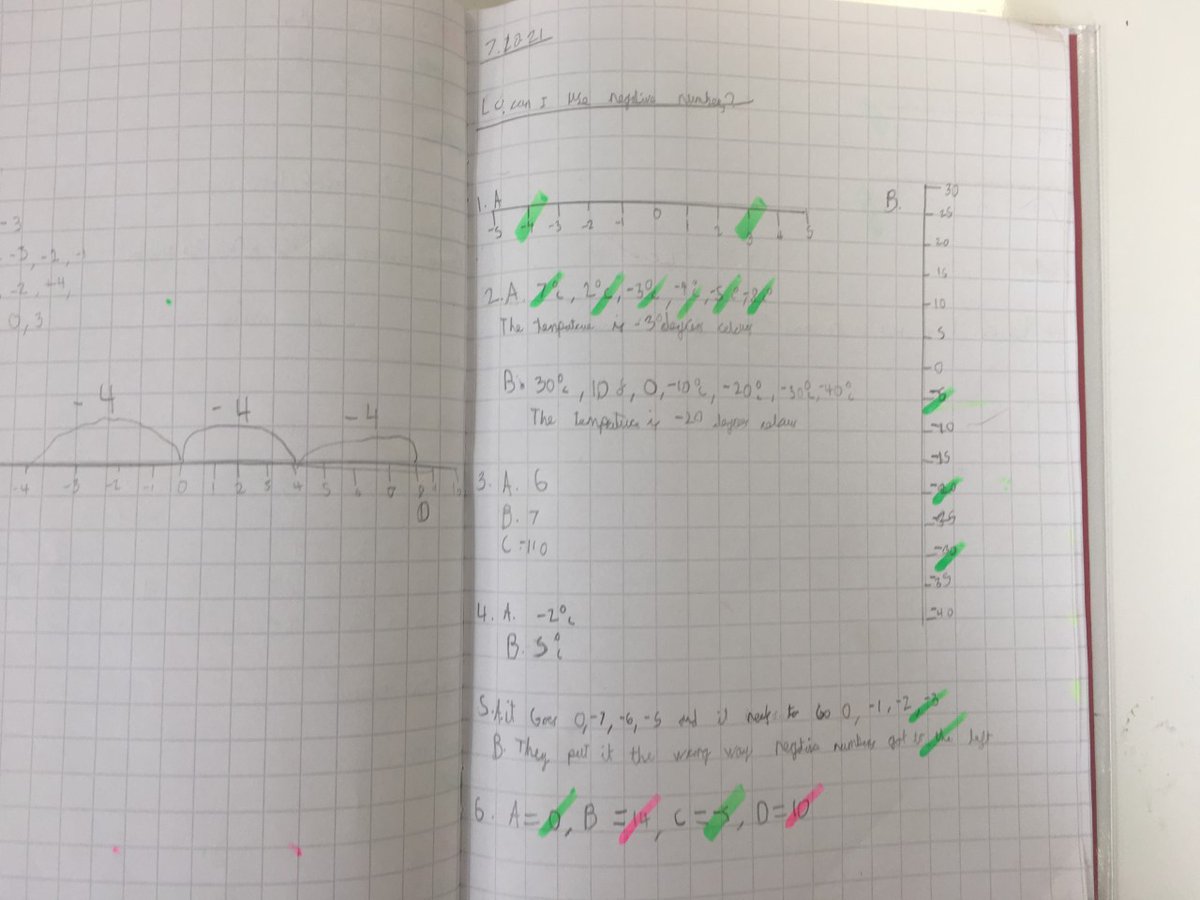 -3
-3, -2, -1
-2, +4,
0, 3
-4 -4 -4
-4 -3 -2 -1 0 1 2 3 4 5 6 7 8
D
7.2021
LO, can I use negative numbers?
1. A
-5 -4 -3 -2 -1 0 1 2 3 4 5
B.
30
25
20
15
10
5
0
-5
-10
-15
-20
-25
-30
-35
-40
2. A 7°c, 2°c, -3°c, -4°c, -5°c
The temperature is -3° degrees
B. 30°c, 10°c, 0, -10°c, -20°c, -30°c, -40°c
The temperature is -20 degrees
3. A. 6
B. 7
C = 110
4. A. -2°c
B. 5°c
5. A. it Goes 0, -7, -6, -5 and it needs to Go 0, -1, -2, -3
B. They put it the wrong way negative numbers got to the left
6. A = 0, B = 14, C = -5, D = 10